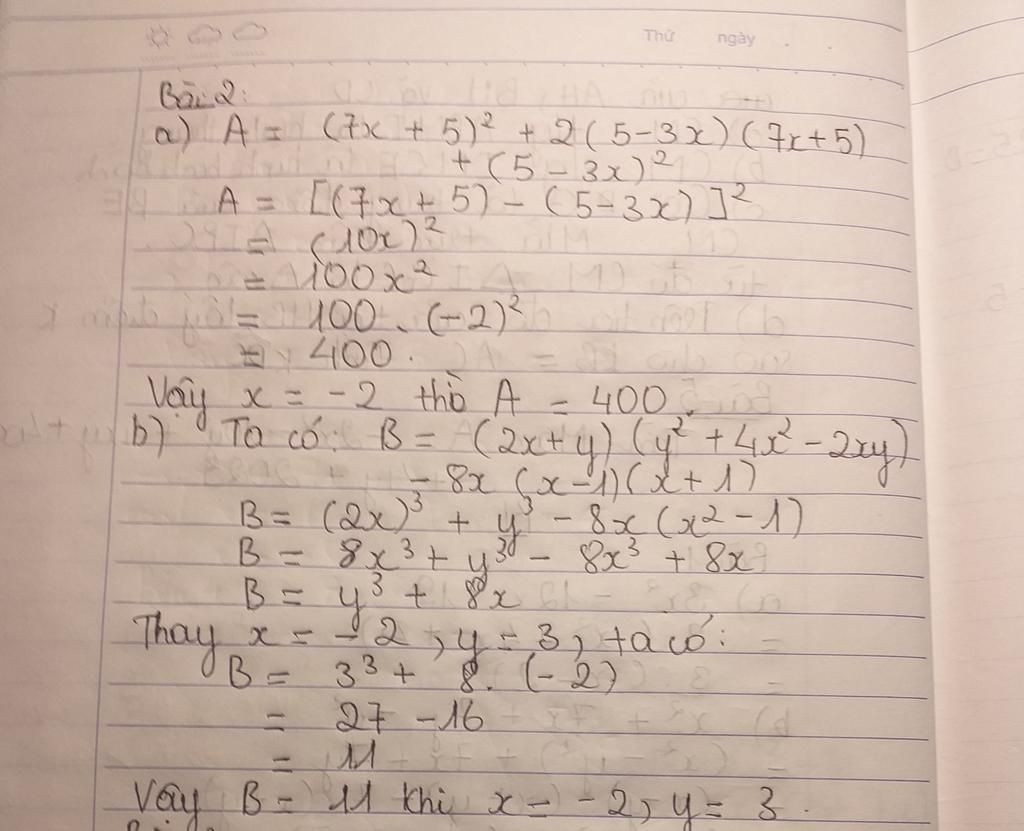 Thứ ngày
Bài 2:
a) A = (7x + 5)² + 2(5-3x)(7x+5)
+ (5 - 3x)²
A = [(7x + 5) - (5-3x)]²
= (10x)²
= 100x²
= 100 . (-2)²
= 400.
Vậy x = -2 thì A = 400.
b) Ta có: B = (2x+y)(y² + 4x² - 2xy)
- 8x (x-1)(x+1)
B = (2x)³ + y³ - 8x(x² - 1)
B = 8x³ + y³ - 8x³ + 8x
B = y³ + 8x
Thay x = -2, y = 3, ta có:
B = 3³ + 8. (-2)
= 27 - 16
= 11
Vậy B = 11 khi x = -2, y = 3.